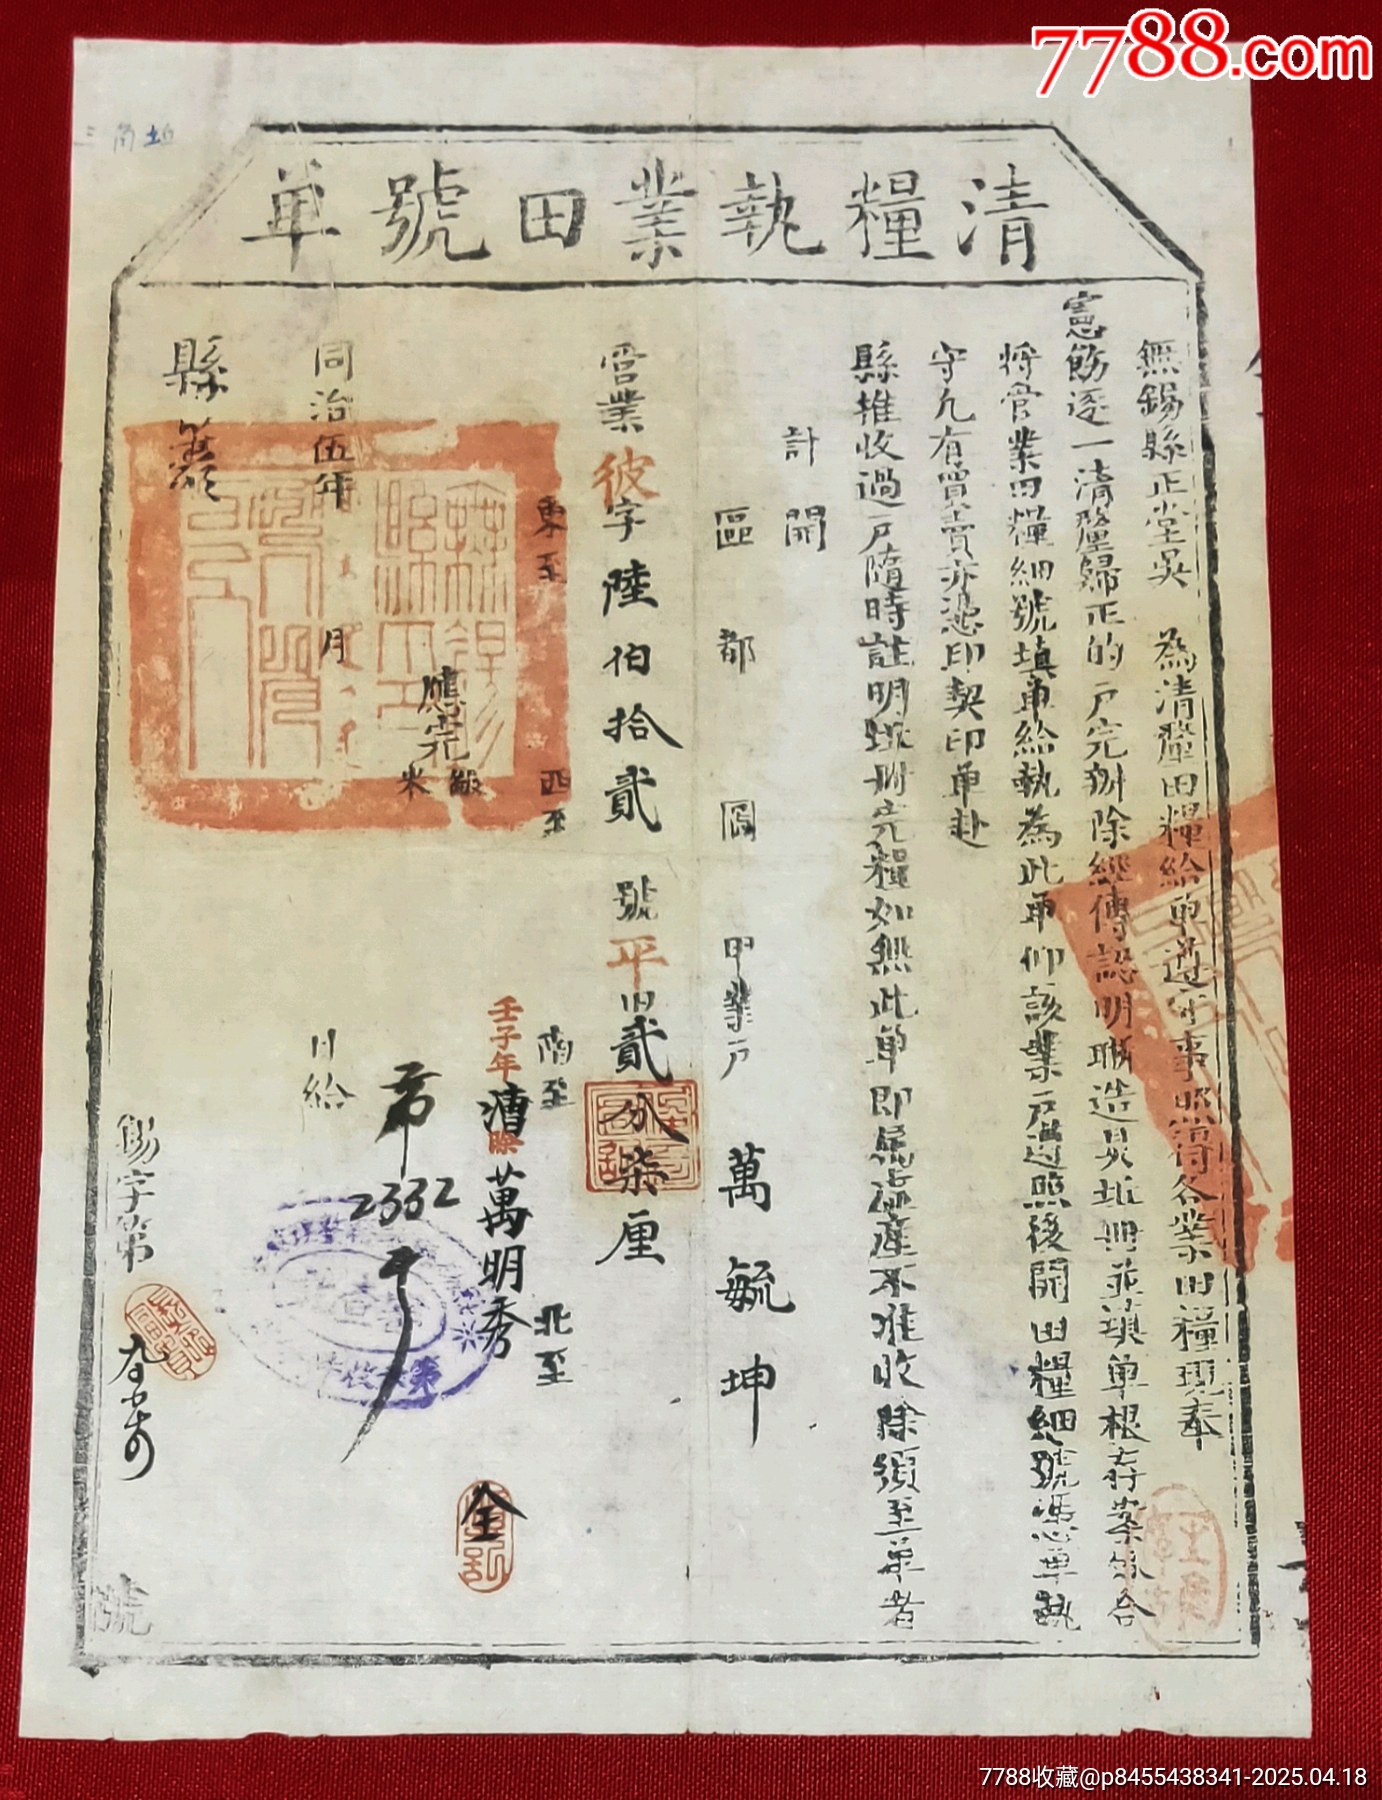 7788.com
三角坵
清糧執業田號單
無錫縣正堂吳 為清釐田糧給單遵守事照得各業田糧現奉
憲飭逐一清釐歸正的戶完辦除經傳認明聯造具坵冊並填單根存案外合
將管業田糧細號填單給執為此單仰該業戶遵照後開田糧細號憑單執
守凡有買賣亦憑印契印單赴
縣推收過戶隨時註明坵冊完糧如無此單即屬盜產不准收除須至單者
計開
區 都 圖 甲業戶 萬毓坤
管業彼字陸伯拾貳號平田貳分柒厘
東至 西至 南至 北至
壬子年漕除萬明秀 全
應完
米
2332
同治伍年 月 日給
縣
錫字第 號
7788收藏@p8455438341-2025.04.18